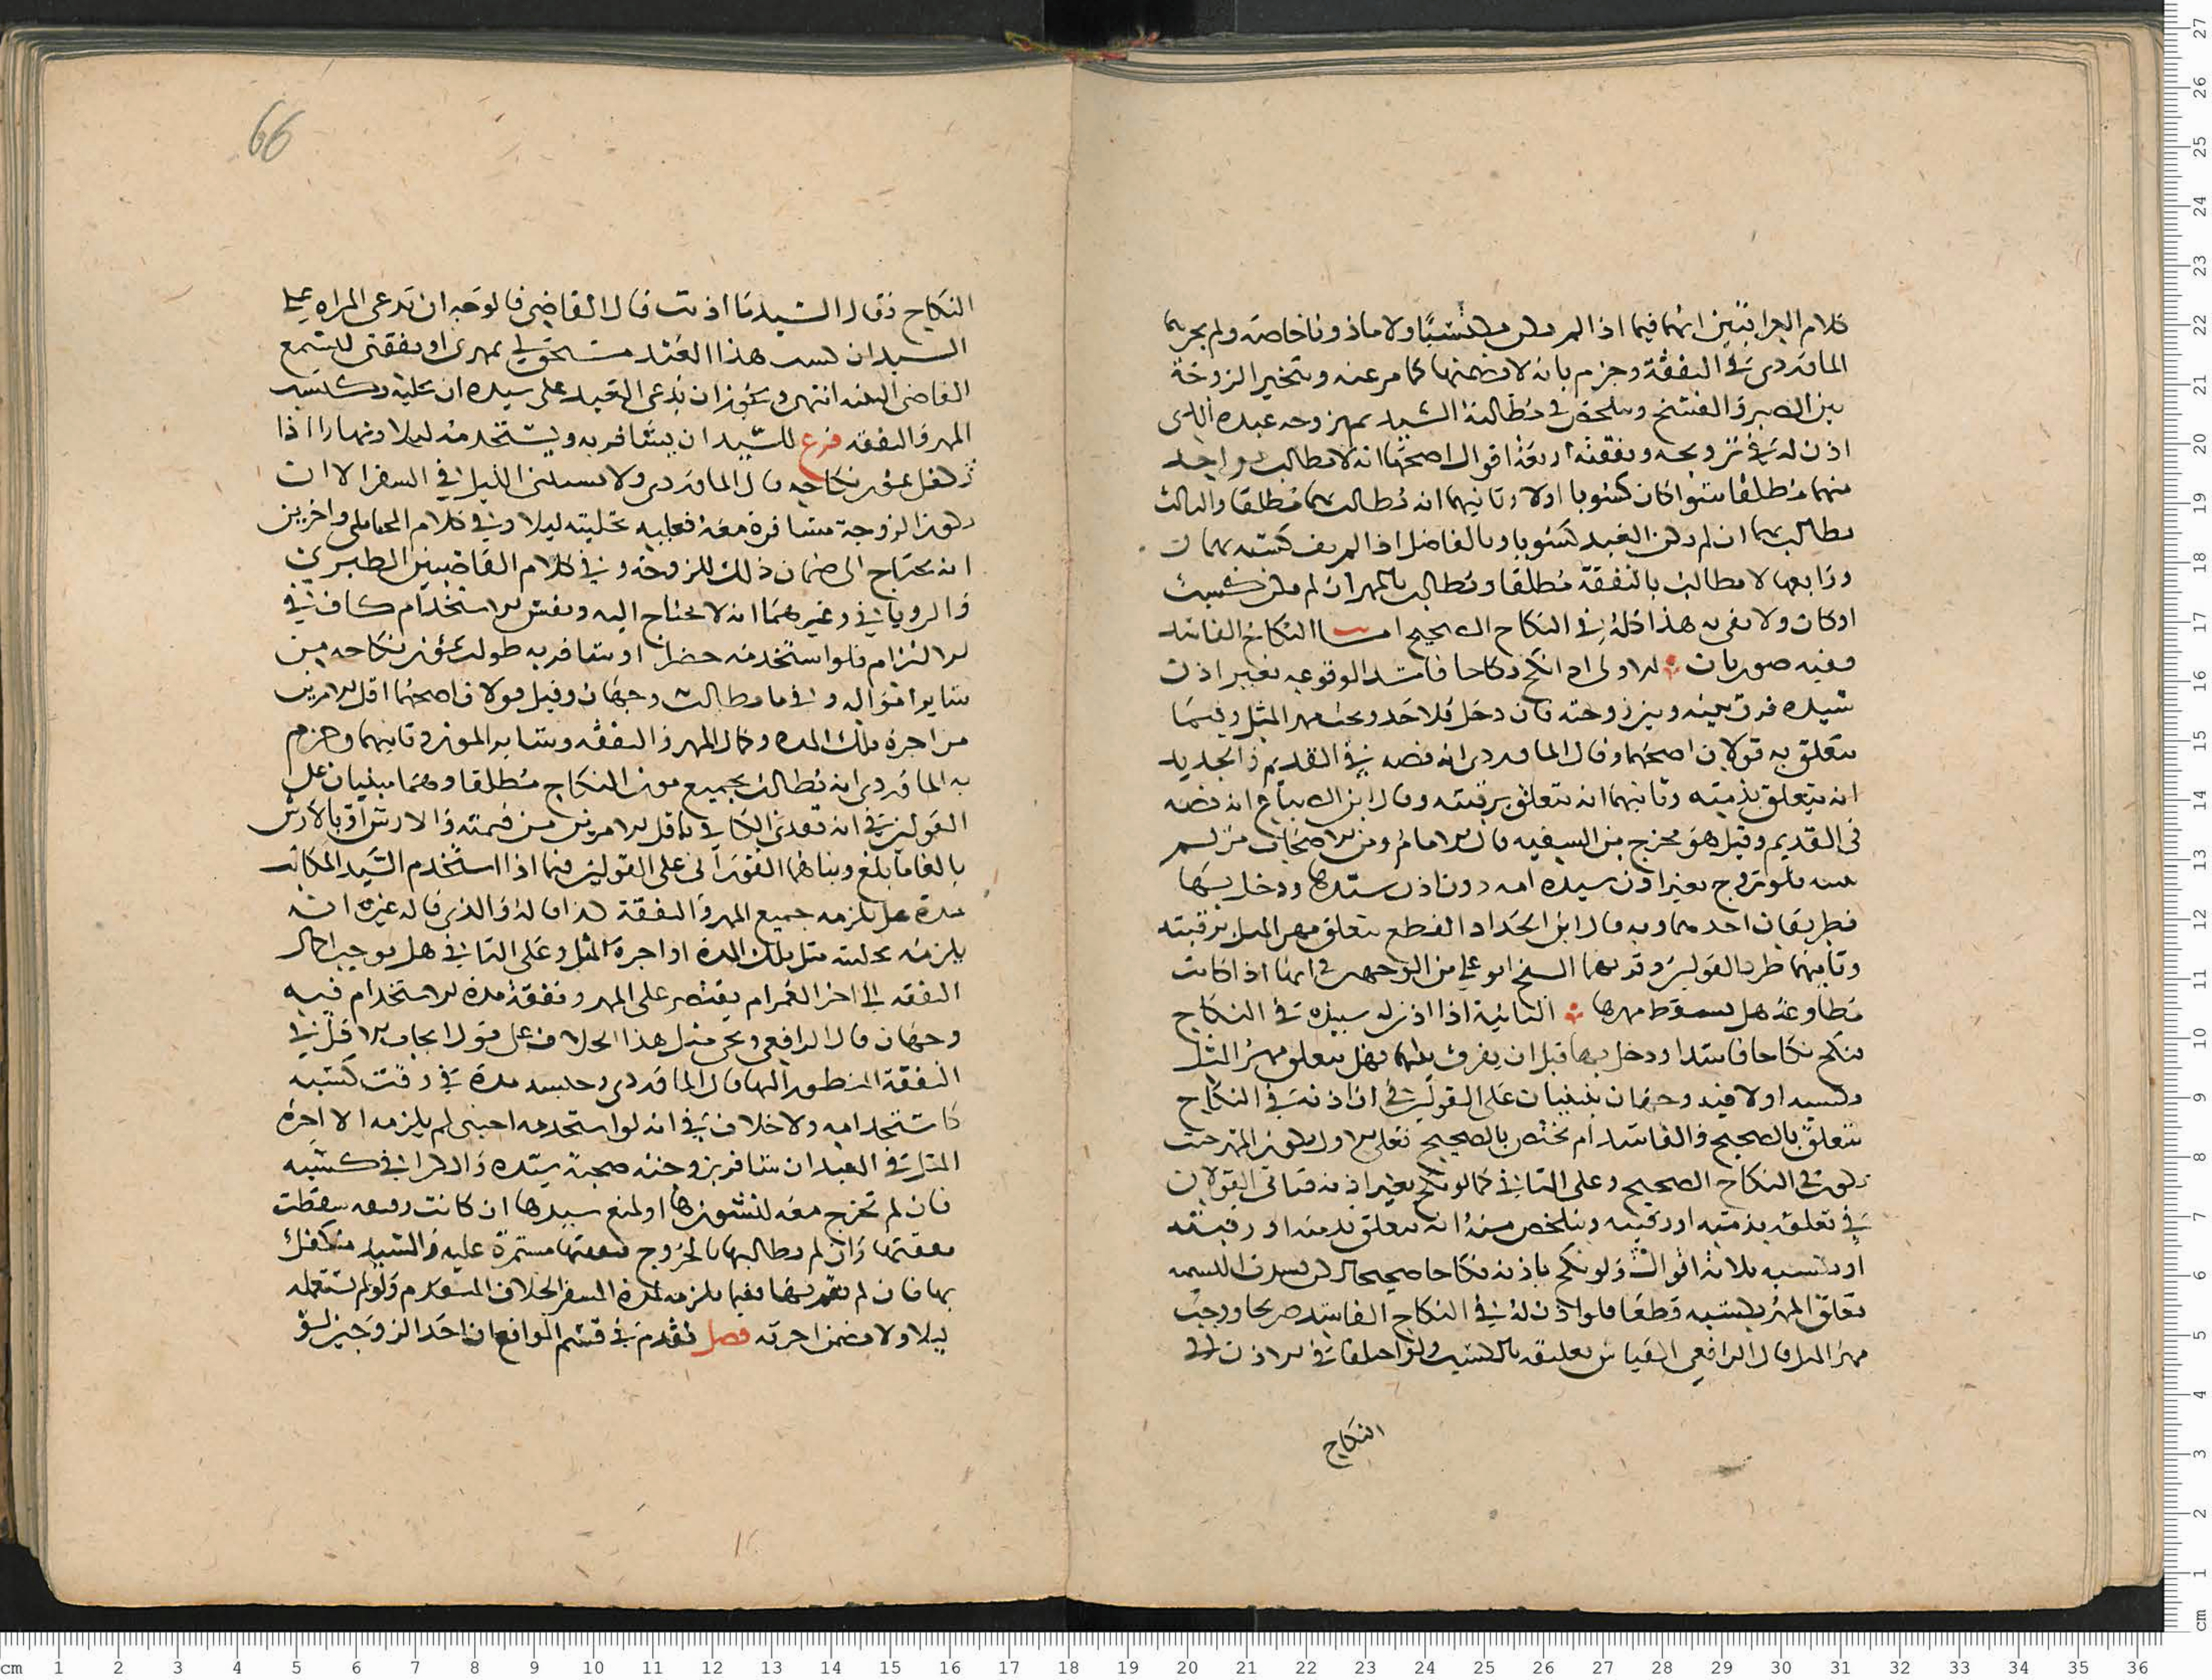 كلام العراقيين انهما فيما اذا لم يكن مكتسبًا ولا ماذونا خاصة ولم يجر بها
الماوردى في النفقة وجزم بانه لا يضمنها كما مر عنه وتتخير الزوجة
بين الصبر والفسخ ويتلخص في مطالبة السيد بمهر زوجه عبده الذى
اذن له في تزويجه ونفقته اربعة اقوال اصحها انه لا يطالب بواحد
منهما مطلقا سوا كان كسوبا اولا وثانيها انه يطالب بهما مطلقا والثالث
يطالب بهما ان لم يكن العبد كسوبا وبالفاضل اذا لم يف كسبه بهما
ورابعها لا يطالب بالنفقة مطلقا ويطالب بالمهر ان لم يكن كسب
او كان ولا يفى به هذا كله في النكاح الصحيح اما النكاح الفاسد
ففيه صورتان الاولى اذا نكح نكاحا فاسدا لوقوعه بغير اذن
سيده فرق بينه وبين زوجته فان دخل فلا حد ويجب مهر المثل وفيما
يتعلق به قولان اصحهما وقال الماوردى انه نصه في القديم والجديد
انه يتعلق بذمته وثانيهما انه يتعلق برقبته وقال ابن الصباغ انه نصه
فى القديم وقيل هو مخرج من السفيه قال الامام ومن الاصحاب من لم
فلو تزوج بغير اذن سيده امه دون اذن سيدها ودخل بها
فطريقان احدهما وبه قال ابن الحداد القطع بتعلق مهر المثل برقبته
وثانيهما طرد القولين وقربهما الشيخ ابو علي من الوجهين في انها اذا كانت
مطاوعة هل يسقط مهرها الثانية اذا اذن له سيده في النكاح
فنكح نكاحا فاسدا ودخل بها قبل ان يفرق بينهما فهل يتعلق مهر المثل
بكسبه اولا فيه وجهان ينبنيان على القولين في ان اذنه في النكاح
يتعلق بالصحيح والفاسد ام يختص بالصحيح فعلى الاول يكون المهر حيث
يكون في النكاح الصحيح وعلى الثاني كما لو نكح بغير اذنه فتاتى القولان
في تعلقه بذمته او رقبته ويتلخص منه انه يتعلق بذمته او رقبته
او بكسبه ثلاثة اقوال ولو نكح باذنه نكاحا صحيحا لكن فسدت التسمية
تعلق المهر بكسبه قطعا فلو اذن له في النكاح الفاسد صريحا ووجب
مهر المثل قال الرافعي القياس تعليقه بالكسب ولو اختلفا في الاذن في
النكاح
66
النكاح فقال السيد ما اذنت قال القاضي فالوجه ان تدعى المراه على
السيد ان كسب هذا العبد مستحق لي بمهرى ونفقتى ليسمع
القاضى البينه انتهى ويجوز ان يدعى العبد على سيده ان عليه ركسبه
المهر والنفقه فرع للسيد ان يسافر به ويستخدمه ليلا ونهارا اذا
تكفل بمؤن نكاحه قال الماوردى ولا يستثنى الليل في السفر الا ان
تكون الزوجة مسافرة معه فعليه تخليته ليلا وفي كلام المحاملى واخرين
انه يحتاج الى ضمان ذلك للزوجة وفي كلام القاضيين الطبري
والروياني وغيرهما انه لا يحتاج اليه ونفس الاستخدام كاف في
الالتزام فلو استخدمه حضرا او سافر به طولب بمؤن نكاحه من
ساير امواله وفيما يطالب وجهان وقيل قولان اصحهما اقل الامرين
من اجرة تلك المده وكال المهر والنفقه وساير المون وثانيهما وجزم
به الماوردى انه يطالب بجميع مون النكاح مطلقا وهما مبنيان على
القولين في انه تفدى الجاني باقل الامرين من قيمته والارش او بالارش
بالغا ما بلغ وبناهما الفوراني على القولين فيما اذا استخدم السيد المكاتب
مدة هل يلزمه جميع المهر والنفقة كذا قاله والذى قاله غيره انه
يلزمه تخليته مثل تلك المدة او اجرة المثل وعلى الثاني هل يوجب اكمال
النفقه الى اخر العمر ام يقتصر على المهر ونفقة مدة الاستخدام فيه
وجهان قال الرافعي ويجى مثل هذا الخلاف على قول ايجاب الاقل في
النفقة المنظور اليها قال الماوردى وحبسه مدة في وقت كسبه
كاستخدامه ولا خلاف في انه لو استخدمه اجنبى لم يلزمه الا اجرة
المثل في العبد ان يسافر بزوجته صحبة سيده والكرا في كسبه
فان لم تخرج معه لنشوزها او لمنع سيدها ان كانت رقيقه سقطت
نفقتها وان لم يطالبها بالخروج فنفقتها مستمرة عليه والسيد متكفل
بها فان لم يقم بها ففيما يلزمه لمدة السفر الخلاف المتقدم ولو لم يستعمله
ليلا ولا يضمن اجرته فصل تقدم في قسم الموانع ان احد الزوجين لو